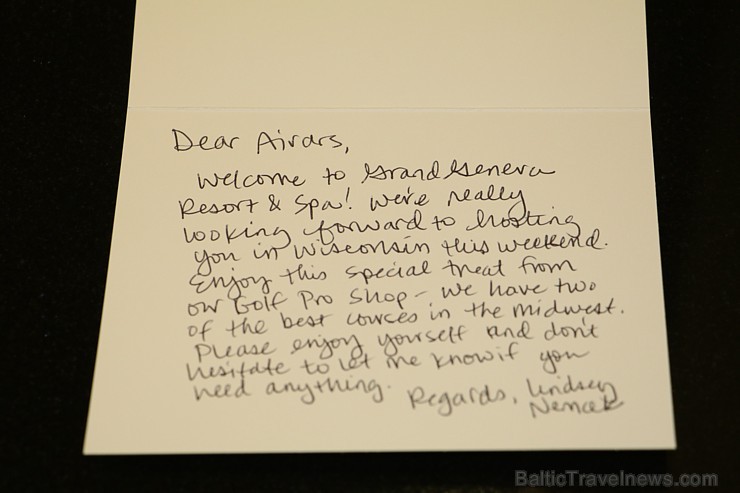 Dear Aivars,
Welcome to Grand Geneva
Resort & Spa! We're really
looking forward to hosting
you in Wisconsin this weekend.
Enjoy this special treat from
our Golf Pro Shop - we have two
of the best courses in the midwest.
Please enjoy yourself and don't
hesitate to let me know if you
need anything.
Regards, Lindsey
BalticTravelnews.com